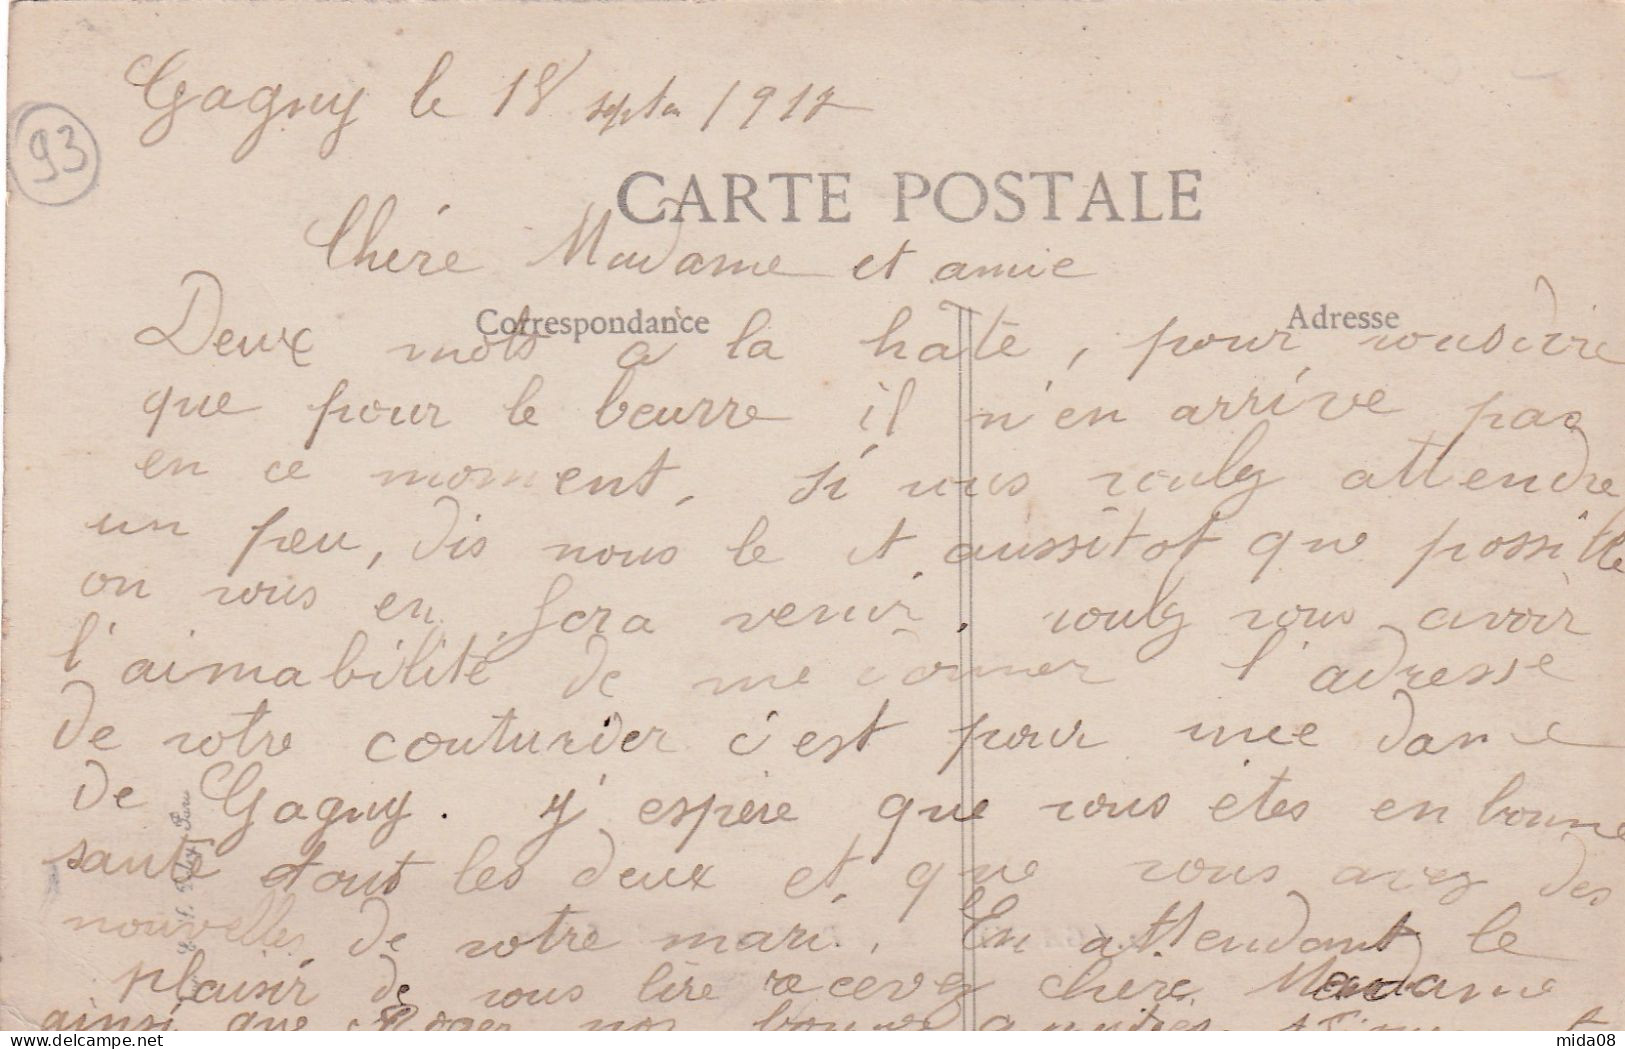 Gagny le 18 septbr 1917
93
CARTE POSTALE
Chère Madame et amie
Correspondance
Adresse
Deux mots a la hate, pour vous dire
que pour le beurre il n'en arrive pas
en ce moment. si vous voulez attendre
un peu, dis nous le et aussitot que possible
on vous en fera venir. voulez vous avoir
l'aimabilité de me donner l'adresse
de votre couturier c'est pour une dame
de Gagny. J'espère que vous êtes en bonne
santé tous les deux et que vous avez des
nouvelles de votre mari. En attendant le
plaisir de vous lire recevez chère Madame
ainsi que Roger nos bonnes amitiés.
mida08